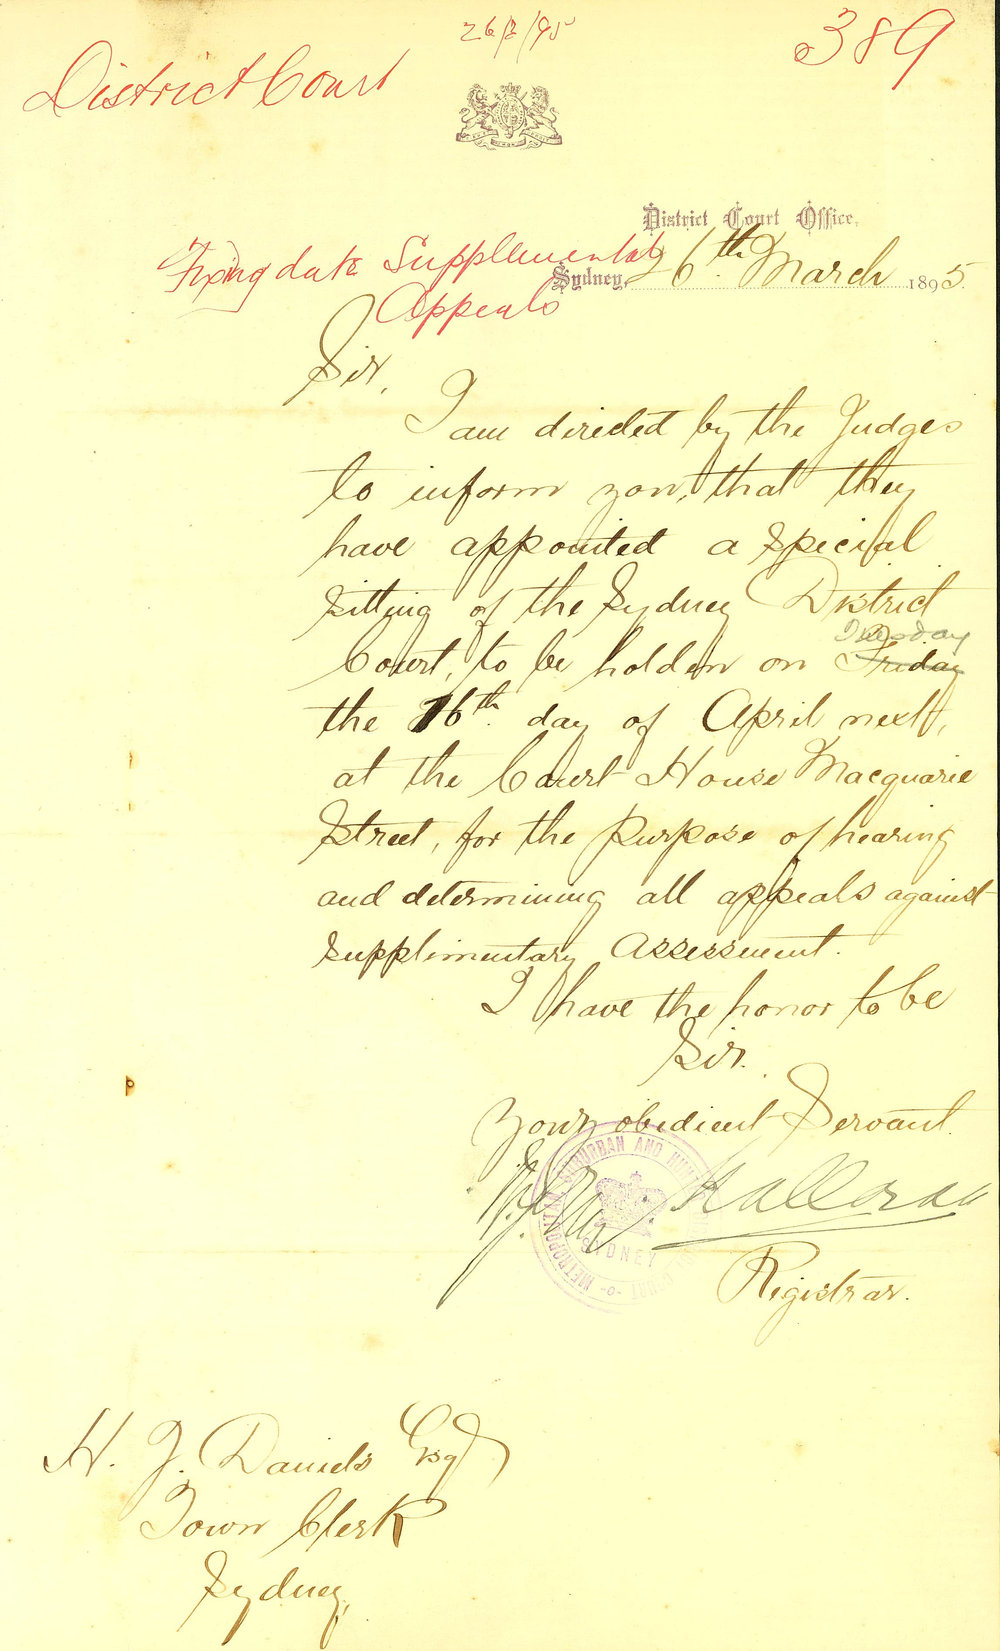 26/3/95
389
District Court
District Court Office,
Fixing date Supplemental
Appeals
Sydney, 26th March 1895.
Sir,
I am directed by the Judges
to inform you, that they
have appointed a special
sitting of the Sydney District
Tuesday
Court, to be holden on Friday
the 16th day of April next,
at the Court House Macquarie
Street, for the purpose of hearing
and determining all appeals against
supplimentary assessment.
I have the honor to be
Sir.
Your obedient Servant.
Halloran
Registrar.
METROPOLITAN SUBURBAN AND
SYDNEY
H. J. Daniels Esq
Town Clerk
Sydney,